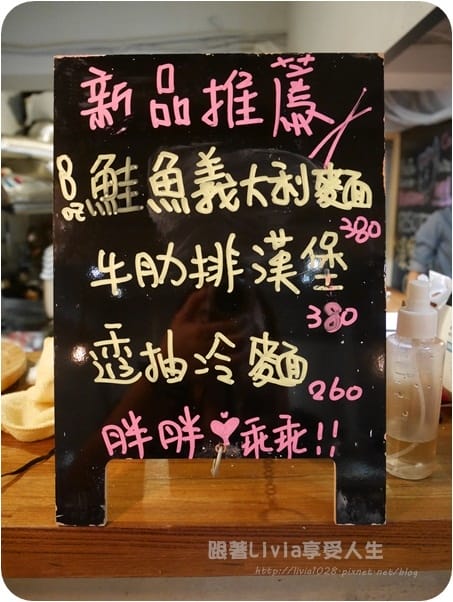 新品推薦
8吃鮭魚義大利麵
380
牛肋排漢堡
380
透抽冷麵
260
胖胖♥乖乖!!
跟著Livia享受人生
http://livia1028.pixnet.net/blog